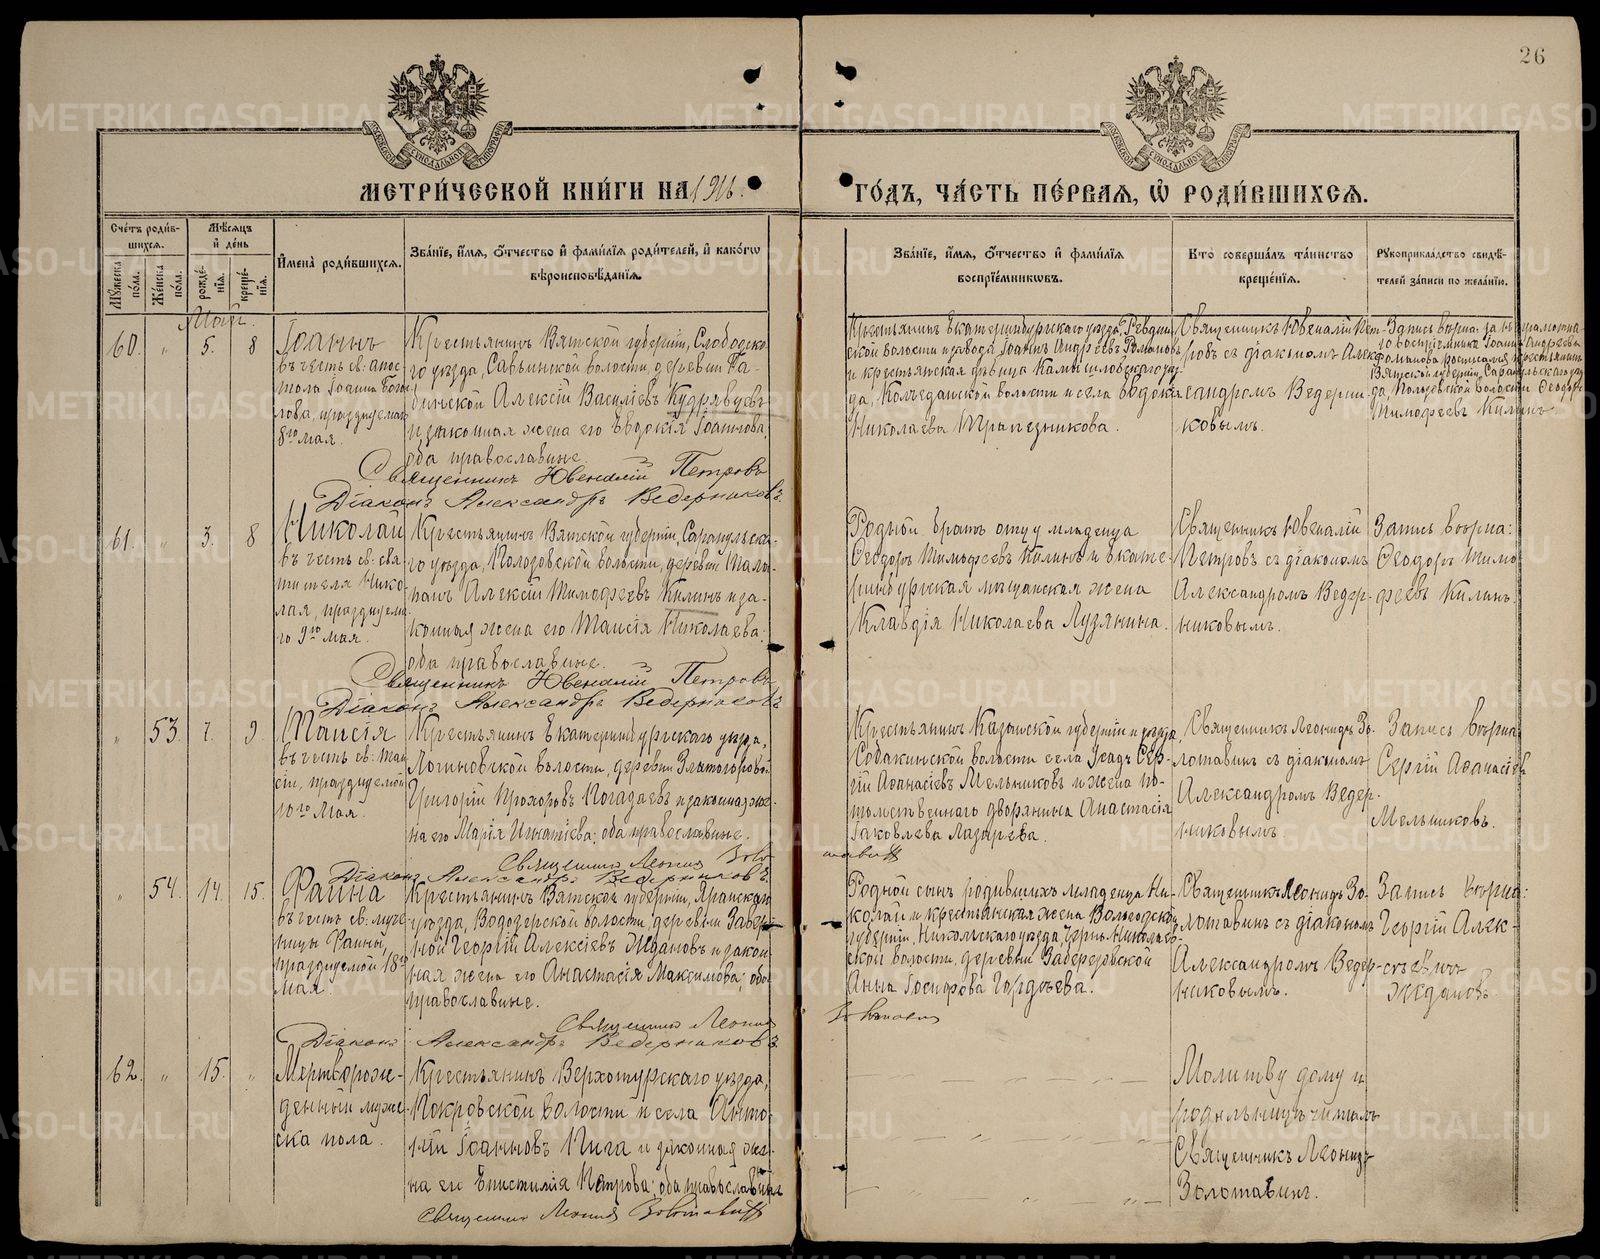 26
МЕТРИ́ЧЕСКОЙ КНИ́ГИ НА 1916.
ГО́ДЪ, ЧА́СТЬ ПЕ́РВАЯ, Ѽ РОДИ́ВШИХСЯ.
Сче́тъ роди́вшихся.
Му́жеска по́ла.
Же́нска по́ла.
Мѣ́сяцъ и҆ де́нь
рожде́нїя.
креще́нїя.
И҆мена̀ роди́вшихся.
Зва́нїе, и҆́мя, ѻ҆́тчество и҆ фами́лїя роди́телей, и҆ како́гѡ вѣроисповѣ́данїя.
Зва́нїе, и҆́мя, ѻ҆́тчество и҆ фами́лїя воспрїе́мниковъ.
Кто̀ соверша́лъ та́инство креще́нїя.
Рꙋкоприкла́дство свидѣ́телей за́писи по жела́нїю.
Май.
60. " 5. 8
Іоаннъ
въ честь св. апос-
тола Іоанна Бого-
слова, празднуемаго
8го мая.
Крестьянинъ Вятской губерніи, Слободска-
го уѣзда, Савьинской волости, деревни
Алексій Васильевъ Кудрявцевъ
и законная жена его Евдокія Іоаннова,
оба православные.
Священникъ Ювеналій Петровъ
Діаконъ Александръ Ведерниковъ.
Крестьянинъ Екатеринбургскаго уѣзда, Ревдин-
ской волости и завода Іоаннъ Андреевъ Романовъ
и крестьянская дѣвица Камышловскаго уѣз-
да, Колчеданской волости и села Евдокія
Николаева Трапезникова.
Священникъ Ювеналій Пет-
ровъ съ діакономъ Алек-
сандромъ Ведерни-
ковымъ.
Запись вѣрна: за неграмотна-
го воспріемника Іоанна Андреева
Романова росписался крестьянинъ
Вятской губерніи, Сарапульскаго уѣз-
да, Полозовской волости Ѳеодоръ
Тимофеевъ Килинъ
61. " 3. 8
Николай
въ честь св. свя-
тителя Нико-
лая, празднуема-
го 9го мая.
Крестьянинъ Вятской губерніи, Сарапульска-
го уѣзда, Полозовской волости, деревни
Алексій Тимофеевъ Килинъ и за-
конная жена его Таисія Николаева;
оба православные.
Священникъ Ювеналій Петровъ
Діаконъ Александръ Ведерниковъ
Родной братъ отцу младенца
Ѳеодоръ Тимофеевъ Килинъ и екате-
ринбургская мѣщанская жена
Клавдія Николаева Лузянина.
Священникъ Ювеналій
Петровъ съ діакономъ
Александромъ Ведер-
никовымъ.
Запись вѣрна:
Ѳеодоръ Тимо-
феевъ Килинъ.
" 53. 7. 9.
Таисія
въ честь св. Таи-
сіи, празднуемой
10го Мая.
Крестьянинъ Екатеринбургскаго уѣзда,
Логиновской волости, деревни Златогоровой
Григорій Прохоровъ Погадаевъ и законная же-
на его Марія Игнатіева; оба православные.
Священникъ Леонидъ Золо
тавинъ
Діаконъ Александръ Ведерниковъ.
Крестьянинъ Казанской губерніи и уѣзда,
Собакинской волости села Сер-
гій Аѳанасіевъ Мельниковъ и жена по-
томственнаго дворянина Анастасія
Іаковлева Лазарева.
Священникъ Леонидъ Зо-
лотавинъ съ діакономъ
Александромъ Ведер-
никовымъ
Запись вѣрна:
Сергій Аѳанасіевъ
Мельниковъ.
" 54. 14. 15.
Фаина
въ честь св. муче-
ницы Фаины,
празднуемой 18го
мая.
Крестьянинъ Вятской губерніи, Яранскаго
уѣзда, волости, деревни
Георгій Алексіевъ Ждановъ и закон-
ная жена его Анастасія Максимова; оба
православные.
Священникъ Леонид
Золотавинъ
Діаконъ Александръ Ведерниковъ.
Родной сынъ родившихъ младенца Ни-
колай и крестьянская жена Вологодской
губерніи, Никольскаго уѣзда,
ской волости, деревни
Анна Іосифова Гордѣева.
Священникъ Леонидъ Зо-
лотавинъ съ діакономъ
Александромъ Ведер-
никовымъ.
Запись вѣрна:
Георгій Алек-
сѣевичъ
Ждановъ
62. " 15. "
Мертворож-
денный муже-
ска пола.
Крестьянинъ Верхотурскаго уѣзда,
Покровской волости и села Анто-
ній Іоанновъ Пига и законная же-
на его Епистимія Петрова; оба православные
Священникъ Леонид Золотавинъ
Молитву дому и
родильницѣ читалъ
Священникъ Леонидъ
Золотавинъ.
METRIKI.GASO-URAL.RU